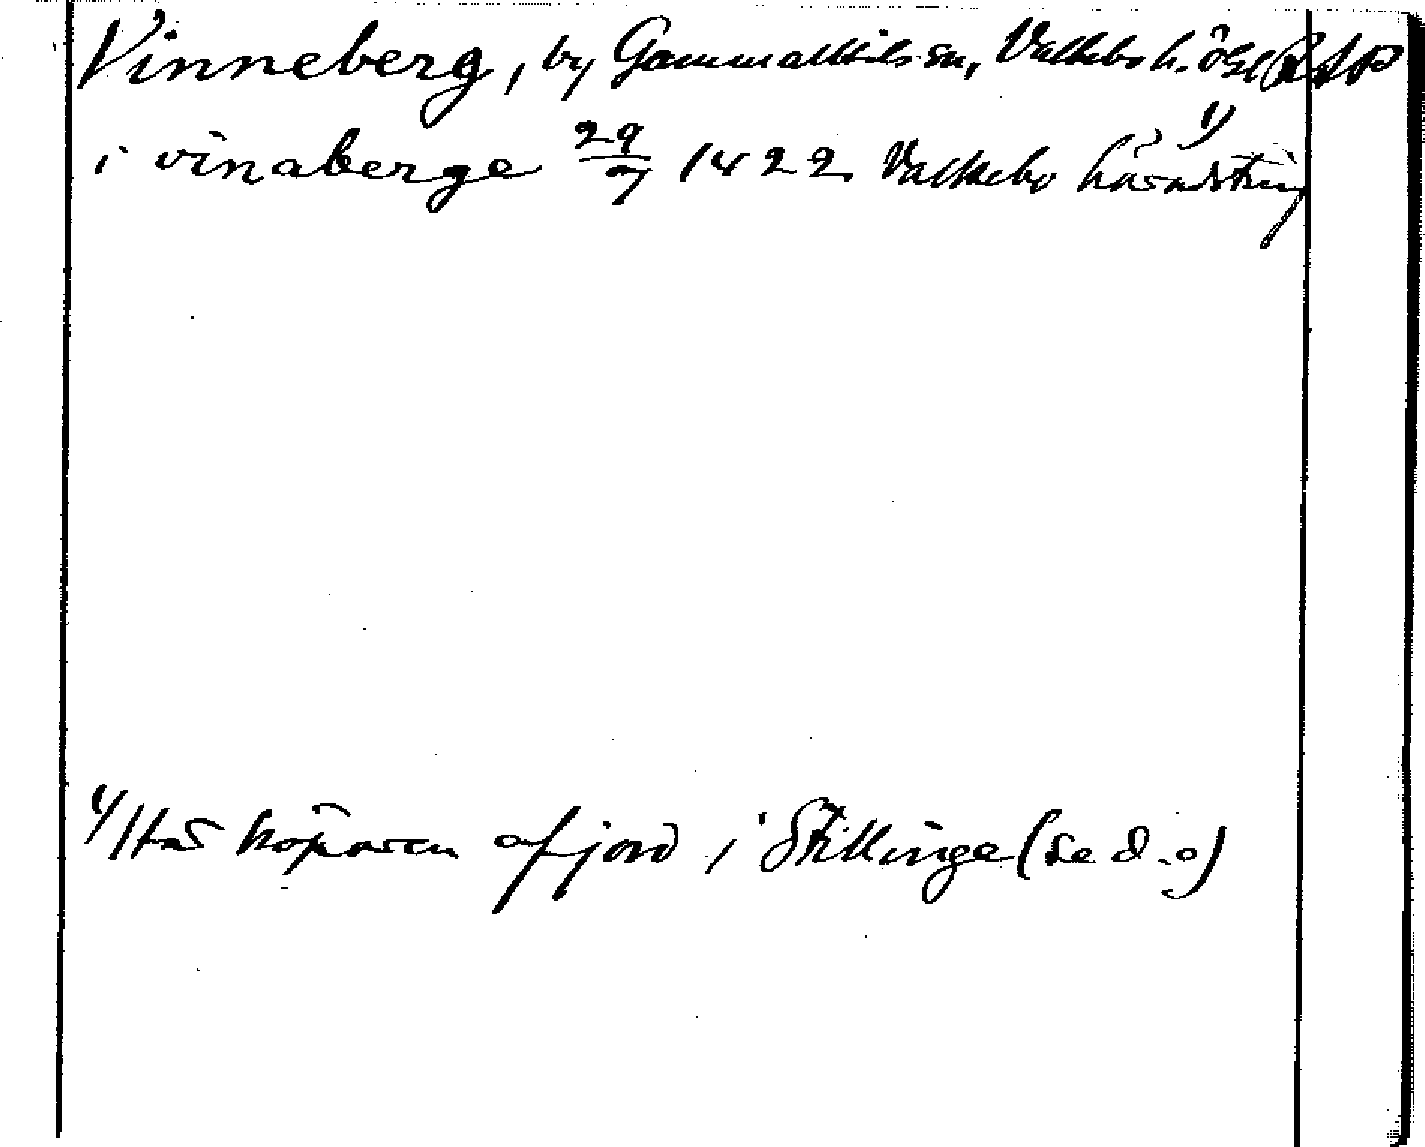 Vinneberg, by Gammalkils sn, Valkebo h. Ögl RAP
i vinaberge 29/7 1422 Valkebo häradsting 1)
1) Har köparen af jord i Stillinge (se d.o)